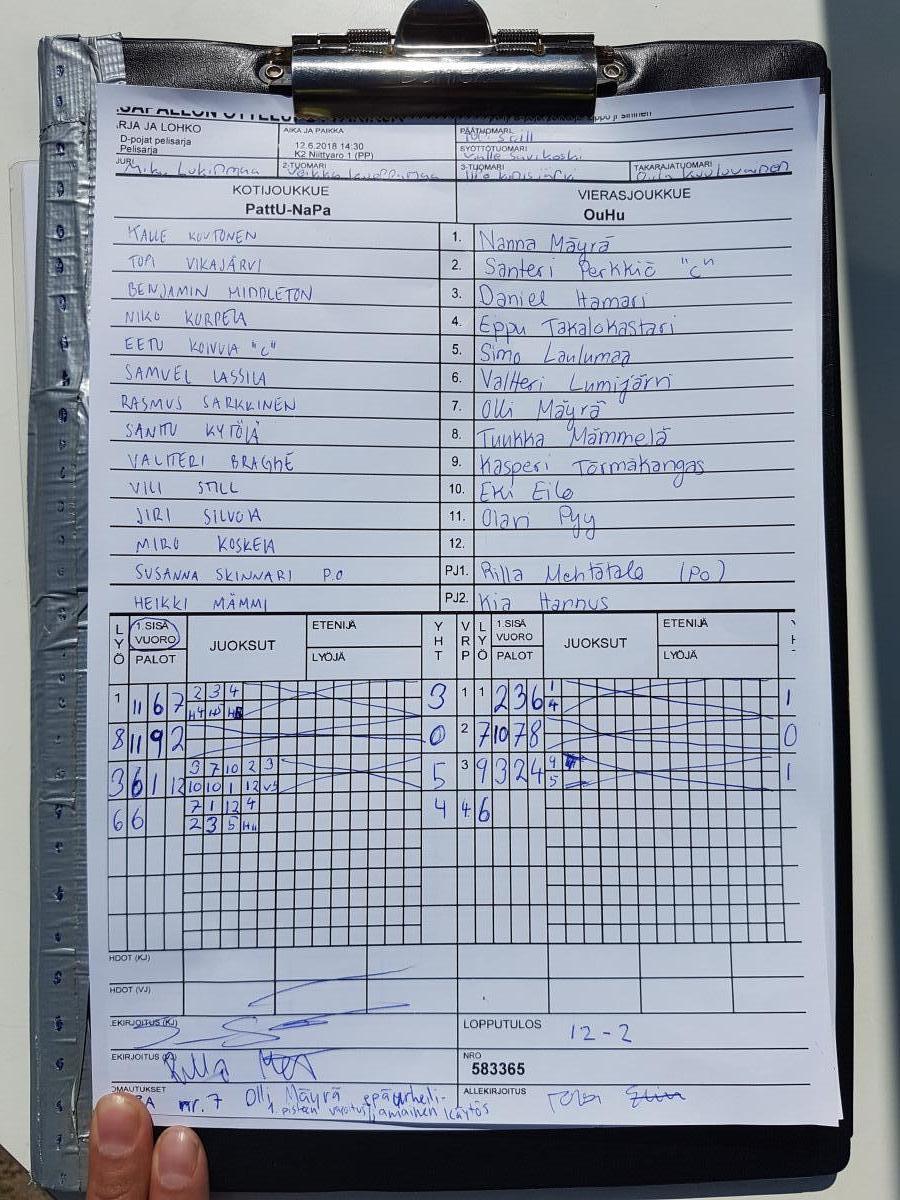 RJA JA LOHKO AIKA JA PAIKKA PÄÄTUOMARI
D-pojat pelisarja 12.6.2018 14:30 SYÖTTÖTUOMARI
Pelisarja K2 Niittyaro 1 (PP) Ville Savikoski
JURI 2-TUOMARI 3-TUOMARI TAKARAJATUOMARI
KOTIJOUKKUE VIERASJOUKKUE
PattU-NaPa OuHu
KALLE KUUTONEN 1. Nanna Mäyrä
TOPI VIKAJÄRVI 2. Santeri Perkkiö "C"
BENJAMIN MIDDLETON 3. Daniel Hamari
NIKO KORPELA 4. Eppu Takalokastari
EETU KOIVULA "C" 5. Simo Laulumaa
SAMUEL LASSILA 6. Valtteri Lumijärvi
RASMUS SARKKINEN 7. Olli Mäyrä
SANTTU KYTÖLÄ 8. Tuukka Mämmelä
VALTTERI BRAGHÉ 9. Kasperi Törmäkangas
VILI STILL 10. Eki Eilo
JIRI SILVOLA 11. Olavi Pyy
MIRO KOSKELA 12.
SUSANNA SKINNARI P.O PJ1. Rilla Mehtätalo (PO)
HEIKKI MÄMMI PJ2. Kia Hannus
LYÖ 1.SISÄ VUORO PALOT JUOKSUT ETENIJÄ LYÖJÄ YHT VRP LYÖ 1.SISÄ VUORO PALOT JUOKSUT ETENIJÄ LYÖJÄ
1 11 6 7 2 3 4 3 1 1 2 3 6 1 4 1
8 11 9 2 0 2 7 10 7 8 0
3 6 1 12 3 7 10 2 3 5 3 9 3 2 4 9 5 1
10 10 1 12 V5
6 6 7 1 12 4 4 4. 6
2 3 5 H11
HDOT (KJ)
HDOT (VJ)
EKIRJOITUS (KJ) LOPPUTULOS 12-2
EKIRJOITUS NRO
583365
OMAUTUKSET ALLEKIRJOITUS
nr. 7 Olli Mäyrä epäurheili-
1. pisteen varoitus jamainen käytös